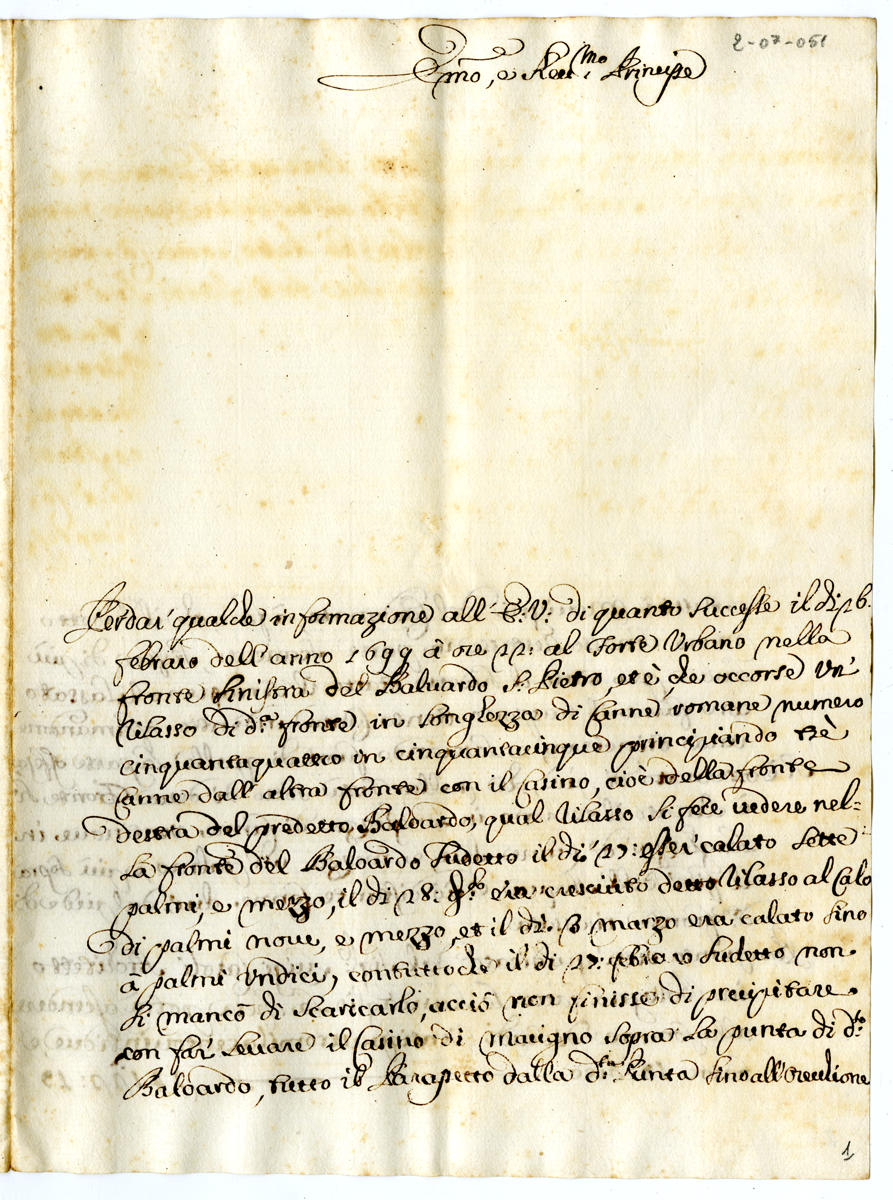 2-07-051
Em̃o, e Reu.mo Principe
Per dar' qualche informazione all' E: V: di quanto successe il di 26.
febraio dell' anno 1699 à ore 22: al Forte Urbano nella
fronte sinistra del Baluardo S: Pietro, et è, che occorse un'
rilasso di d.a fronte in longhezza di Canne romane numero
cinquantaquattro in cinquantacinque principiando trè
Canne dall' altra fronte con il Casino, cioè della fronte
destra del predetto Baloardo, qual rilasso si fece vedere nel=
la fronte del Baloardo sudetto il di 27: esser calato sette
palmi, e mezzo, il di 28: era cresciuto detto rilasso al calo
di palmi noue, e mezzo, et il di 3 marzo era calato sino
à palmi undici, contuttoche il di 27: febraio sudetto non
si mancò di scaricarlo, acciò non finisse di precipitare
con far' leuare il Casino di macigno sopra la punta di d.o
Baloardo, tutto il Parapetto dalla d.a Punta sino all' Orecchione
1